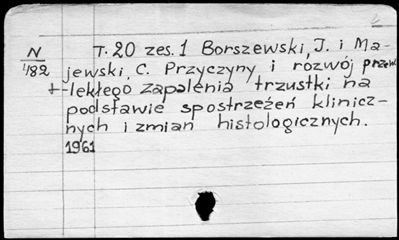 N T. 20 zes. 1 Borszewski, J. i Ma-
482 jewski, C. Przyczyny i rozwój przew
+-lekłego zapalenia trzustki na
podstawie spostrzeżeń klinicz-
nych i zmian histologicznych.
1961